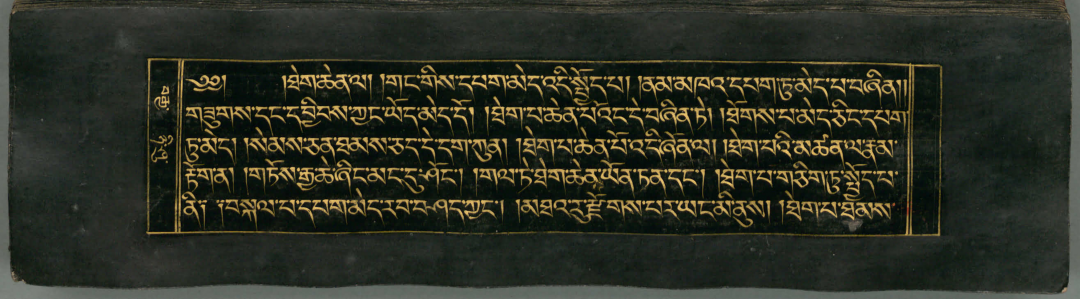 ༄༅། །ཐེག་ཆེན་ལ། །གང་གིས་དཔག་མེད་འདི་སྤྱོད་པ། །ནམ་མཁའ་དཔག་ཏུ་མེད་པ་བཞིན།།
གཟུགས་དང་དབྱིབས་ཀྱང་ཡོད་མེད་དོ། །ཐེག་པ་ཆེན་པོའང་དེ་བཞིན་ཏེ། །ཐོགས་པ་མེད་ཅིང་དཔག་
ཏུ་མེད། །སེམས་ཅན་ཐམས་ཅད་དེ་དག་ཀུན། །ཐེག་པ་ཆེན་པོ་འདི་ཞོན་ལ། །ཐེག་པའི་མཚན་ལ་རྣམ་
རྟོགན། །གཏོས་རྒྱ་ཆེ་ཞིང་མང་དུ་ཤོང་། །གལ་ཏེ་ཐེག་ཆེན་ཡོན་ཏན་དང་། །ཐེག་པ་གཅིག་ཏུ་སྤྱོད་པ་
ནི། །བསྐལ་པ་དཔག་མེད་རབ་བཤད་ཀྱང་། །མཐའ་རུ་རྫོགས་པར་ཡང་མི་ནུས། །ཐེག་པ་ཐམས་